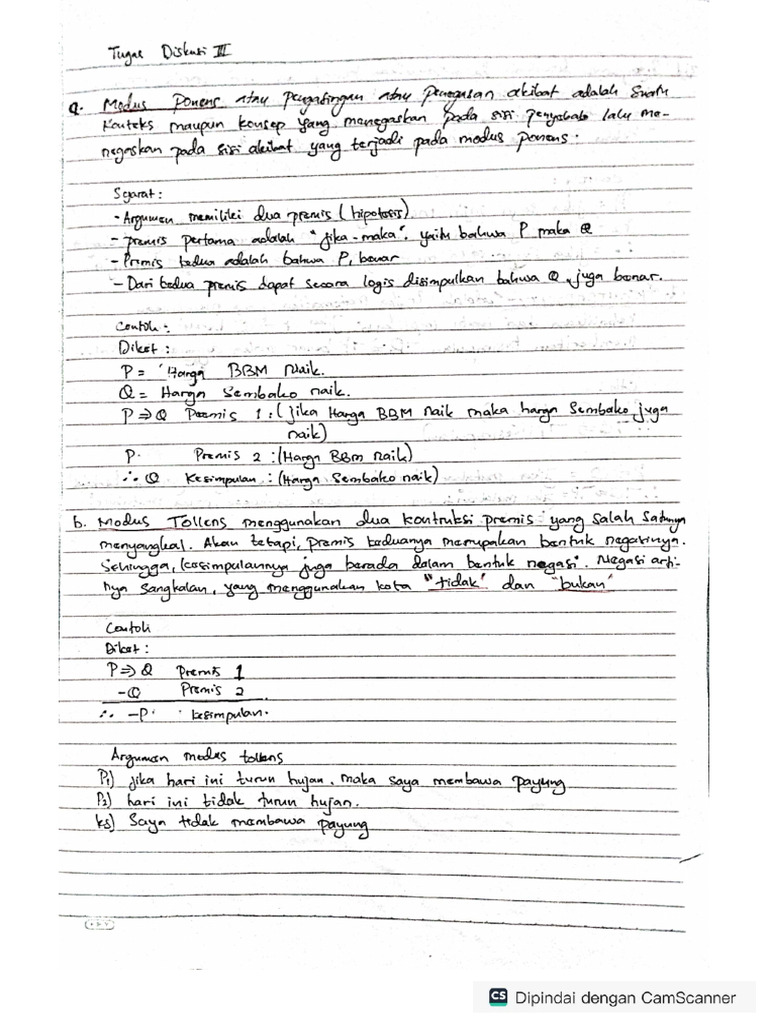 Tugas Diskusi III
a. Modus Ponens atau pengasingan atau penegasan akibat adalah suatu
konteks maupun konsep yang menegaskan pada sisi penyebab lalu me-
negaskan pada sisi akibat yang terjadi pada modus ponens.
Syarat :
- Argumen memiliki dua premis (hipotosis)
- premis pertama adalah "jika-maka". yaitu bahwa P maka Q
- Premis kedua adalah bahwa P, benar
- Dari kedua premis dapat secara logis disimpulkan bahwa Q juga benar.
Contoh :
Diket :
P = Harga BBM Naik.
Q = Harga Sembako naik.
P ⇒ Q Premis 1 : (jika Harga BBM naik maka harga Sembako juga
naik)
P. Premis 2 : (Harga BBM naik)
∴ Q Kesimpulan : (Harga Sembako naik)
b. Modus Tollens menggunakan dua kontruksi premis yang salah satunya
menyangkal. Akan tetapi, premis keduanya merupakan bentuk negasinya.
Sehingga, kesimpulannya juga berada dalam bentuk negasi. Negasi arti-
nya sangkalan, yang menggunakan kata "tidak" dan "bukan"
Contoh
Diket :
P ⇒ Q Premis 1
-Q Premis 2
∴ -P. Kesimpulan.
Argumen modus tollens
P1) jika hari ini turun hujan, maka saya membawa payung
P2) hari ini tidak turun hujan.
ks) Saya tidak membawa payung
CS Dipindai dengan CamScanner